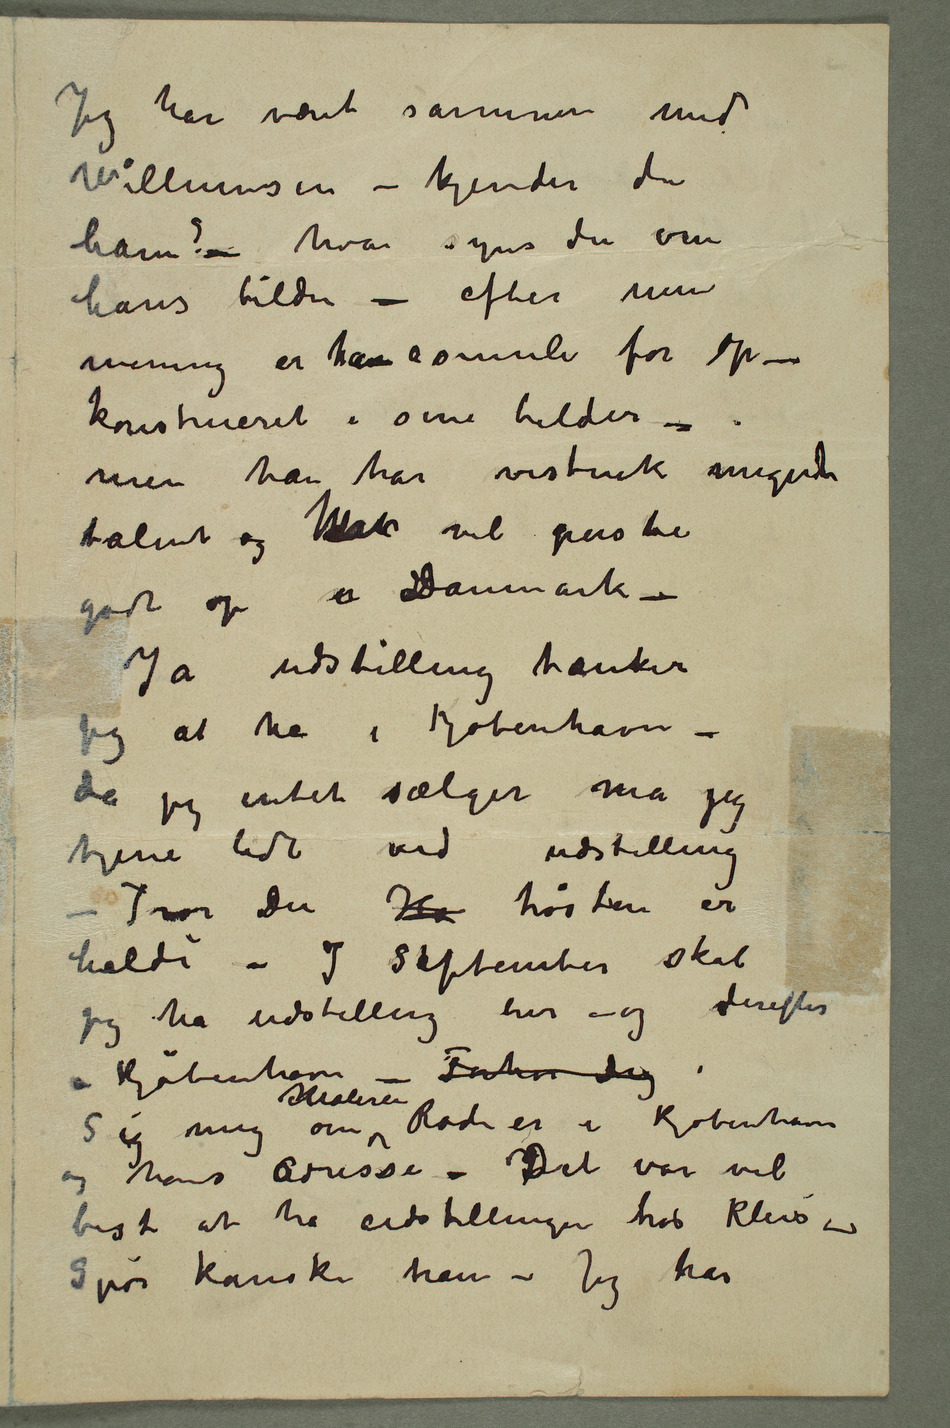 Jeg har været sammen med
Willumsen – kjender du
ham? – hvar synes du om
hans bilder – efter min
mening er han somule for op–
konstrueret i sine bilder –
men han har vistnok megen
talent og vel
godt op i Danmark –
Ja udstilling tænker
jeg at ha i Kjøbenhavn –
da jeg intet sælger må jeg
tjene lidt ved udstilling
– Tror Du Ha hösten er
heldi – I September skal
jeg ha udstilling her – og derefter
i Kjøbenhavn – Forhør dig
Maleren
Sig mig om Rode er i Kjøbenhavn
og hans adresse – Det var vel
best at ha udstillingen hos Kleis –
Spör kanske ham – Jeg har